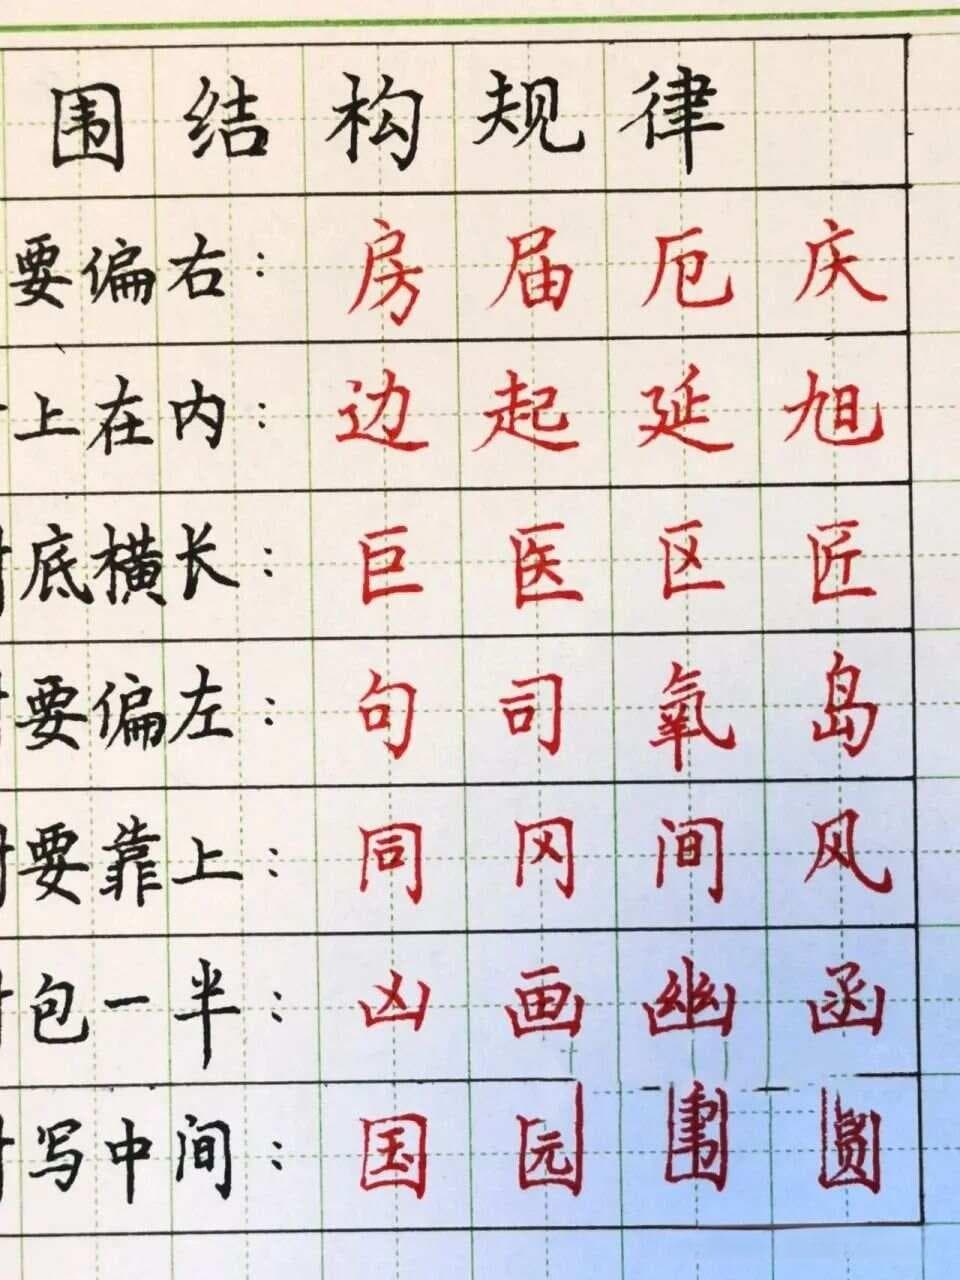 围结构规律
要偏右：房 届 厄 庆
上在内：边 起 延 旭
底横长：巨 医 区 匠
要偏左：句 司 氧 岛
要靠上：同 冈 间 风
包一半：凶 画 幽 函
写中间：国 园 围 圆